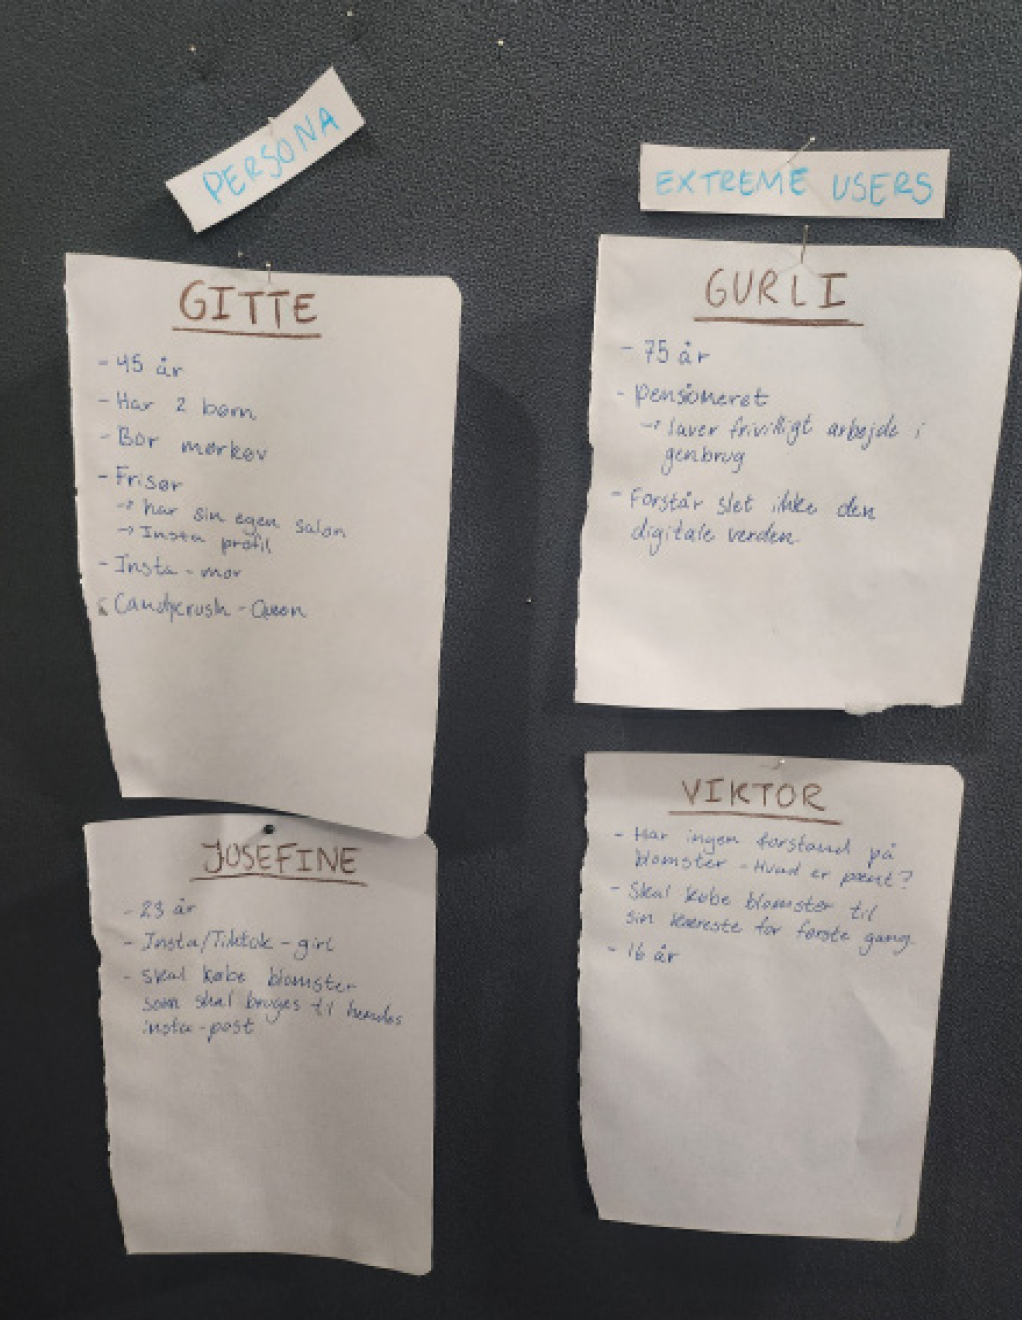 PERSONA
GITTE
- 45 år
- Har 2 børn
- Bor mørkøv
- Frisør
→ har sin egen salon
→ Insta profil
- Insta-mor
- Candycrush - Queen
JOSEFINE
- 23 år
- Insta/Tiktok - girl
- Skal købe blomster
som skal bruges til hendes
insta-post
EXTREME USERS
GURLI
- 75 år
- pensioneret
→ laver frivilligt arbejde i
genbrug
- Forstår slet ikke den
digitale verden
VIKTOR
- Har ingen forstand på
blomster - Hvad er pænt?
- Skal købe blomster til
sin kæreste for første gang
- 16 år